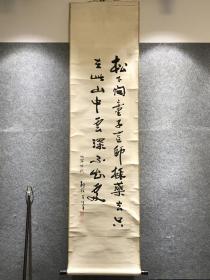 松下問童子言師採藥去只
在此山中雲深不知處